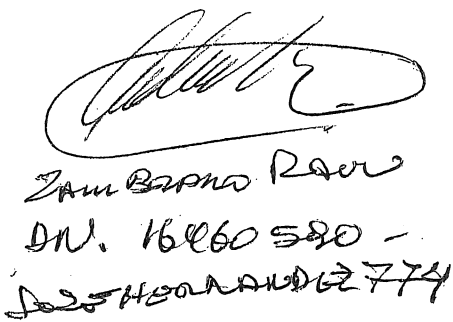 Zambrano Raul
DN. 16460590 -
JOSE HERNANDEZ 774